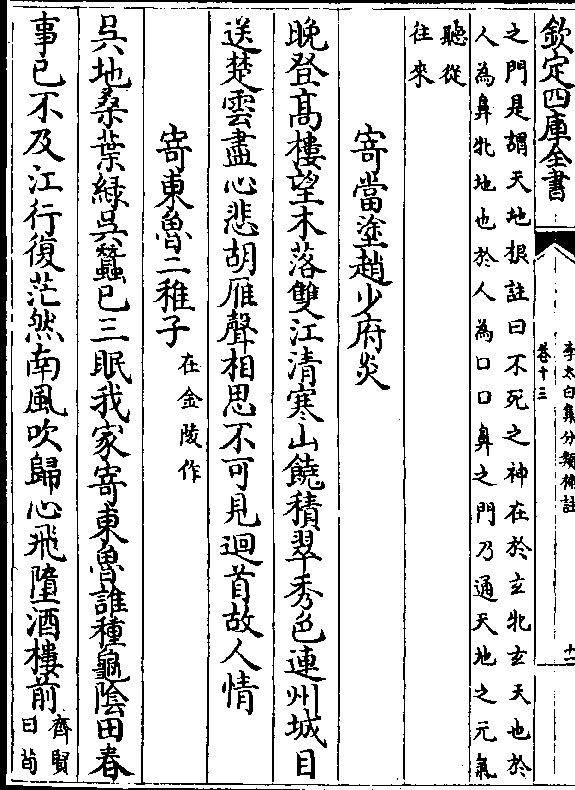 欽定四庫全書
李太白集分類補註
卷十三
十二
之門是謂天地根註曰不死之神在於玄牝玄天也於
人為鼻牝地也於人為口口鼻之門乃通天地之元氣
聽從
往來
寄當塗趙少府炎
晚登髙樓望木落雙江清寒山饒積翠秀色連州城目
送楚雲盡心悲胡雁聲相思不可見迴首故人情
寄東魯二稚子在金陵作
吳地桑葉緑吳蠶已三眠我家寄東魯誰種龜陰田春
事已不及江行復茫然南風吹歸心飛墮酒樓前齊賢
曰荀